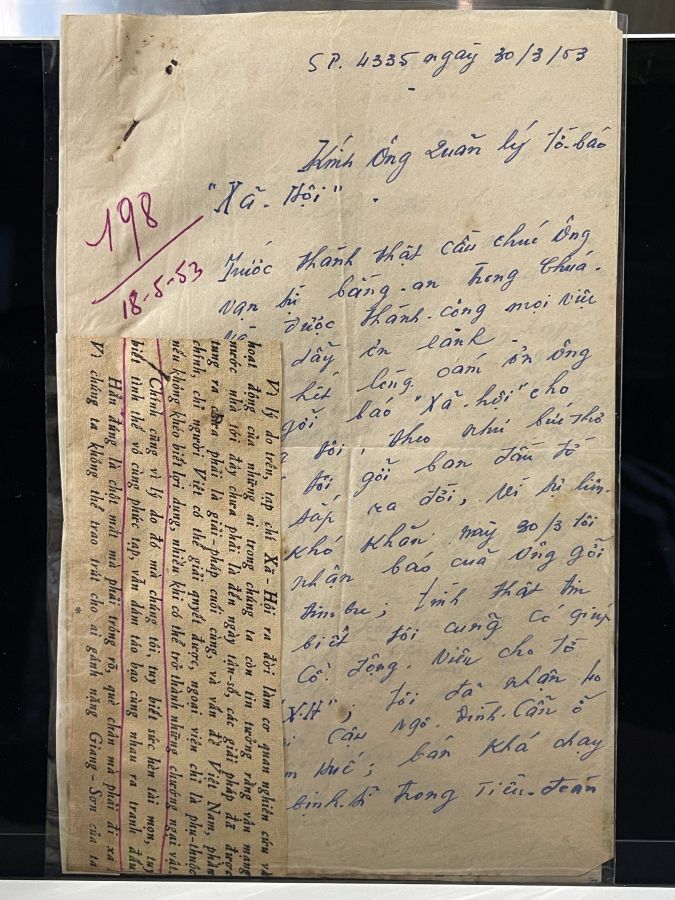 SP. 4335 ngày 30/3/53
Kính Ông Quản lý tờ-báo
"Xã-Hội".
198
18-5-53
Trước thành thật cầu chúc Ông
vạn sự bằng-an trong Chúa.
được thành-công mọi việc
đầy ơn lành.
hết lòng cám ơn Ông
gởi báo "Xã-hội" cho
tôi, theo như bức thơ
tôi gởi ban đầu tờ
sắp ra đời, vì sự liên-
khó khăn mãy 30/3 tôi
nhận báo của Ông gởi
tình thật tin
biết tôi cũng có giúp
Cổ. động. Viên cho tờ
XH"; tôi đã nhận họ
Cậu Ngô-Đình-Cẩn ở
Huế; bán khá chạy
binh-sĩ trong Tiểu-đoàn
Vì lý do trên, tạp chí Xã-Hội ra đời làm cơ quan nghiên cứu và
hoạt động của những ai trong chúng ta còn tin tưởng rằng vận mạng
nước nhà tới đây chưa phải là đến ngày tận-số, các giải pháp đã được
tung ra chưa phải là giải pháp cuối cùng, và vấn đề Việt Nam, phần
chính, chỉ người Việt có thể giải quyết được, ngoại viện chỉ là phụ-thuộc
nếu không khéo biết lợi dụng, nhiều khi có thể trở thành những chướng ngại vật.
Chính cũng vì lý do đó mà chúng tôi, tuy biết sức hèn tài mọn, tuy
biết tình thế vô cùng phức tạp, vẫn dám táo bạo cùng nhau ra tranh đấu
Hẳn đúng là chột mắt mà phải trông rõ, què chân mà phải đi xa!
Vì chúng ta không thể trao trút cho ai gánh nặng Giang-Sơn của ta
*